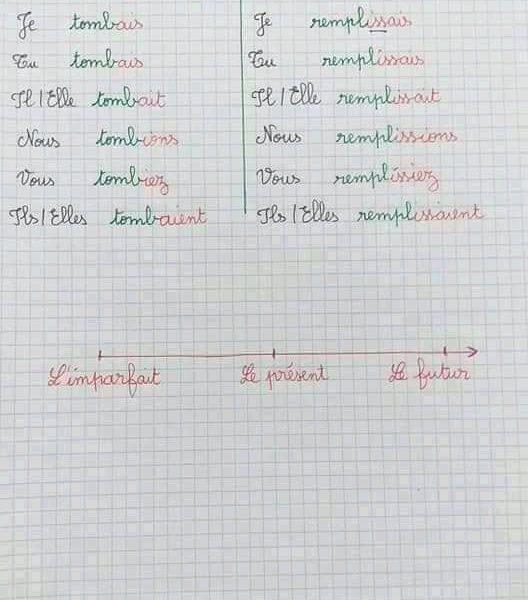 Je tombais Je remplissais
Tu tombais Tu remplissais
Il/Elle tombait Il/Elle remplissait
Nous tombions Nous remplissions
Vous tombiez Vous remplissiez
Ils/Elles tombaient Ils/Elles remplissaient
L'imparfait Le présent Le futur